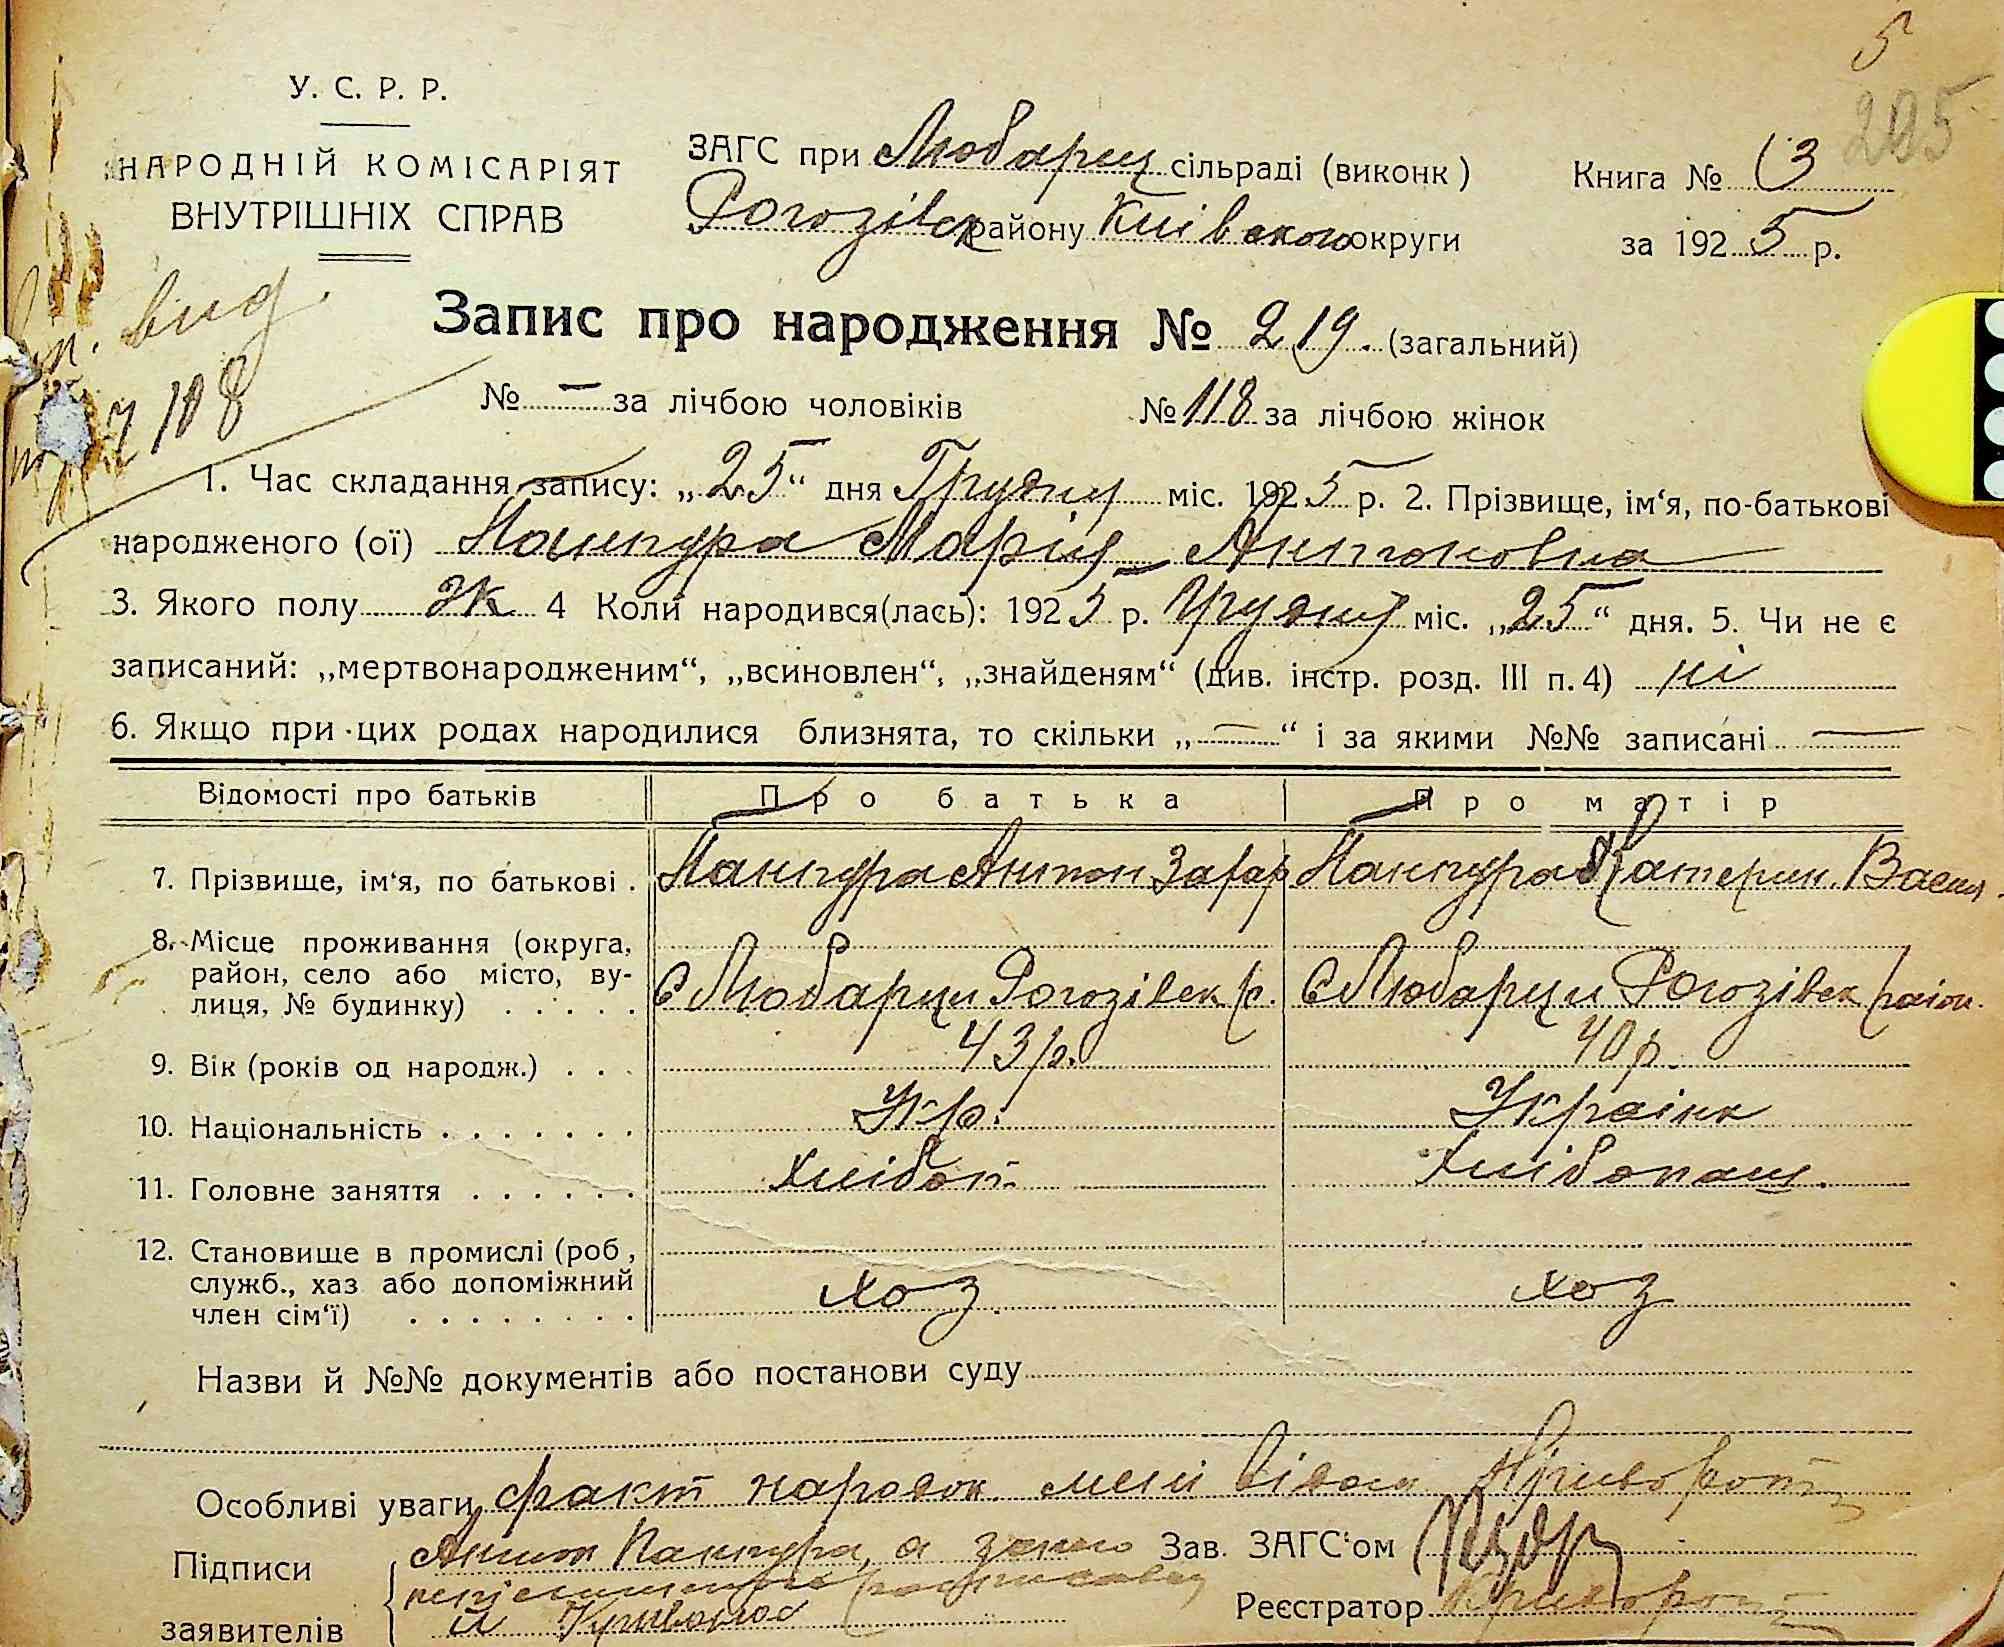 5
205
У. С. Р. Р.
НАРОДНІЙ КОМІСАРІЯТ
ВНУТРІШНІХ СПРАВ
ЗАГС при Любарец сільраді (виконк)
Рогозівск району Київского округи
Книга № 3
за 1925 р.
вид
108
Запис про народження № 219. (загальний)
№ — за лічбою чоловіків № 118 за лічбою жінок
1. Час складання запису: „25“ дня Грудня міс. 1925 р. 2. Прізвище, ім‘я, по-батькові
народженого (ої) Панпура Марія Антоновна
3. Якого полу ж 4 Коли народився(лась): 1925 р. Грудня міс. „25“ дня. 5. Чи не є
записаний: „мертвонародженим“, „всиновлен“, „знайденям“ (див. інстр. розд. III п. 4) ні
6. Якщо при цих родах народилися близнята, то скільки „—“ і за якими №№ записані —
Відомості про батьків Про батька Про матір
7. Прізвище, ім‘я, по батькові . Панпура Антон Захар Панпура Катерин. Васил
8. Місце проживання (округа,
район, село або місто, ву-
лиця, № будинку) . . . . . С Любарци Рогозівск р. С Любарци Рогозівск район.
9. Вік (років од народж.) . . . 43 р. 40 р.
10. Національність . . . . . . . Укр. Українк
11. Головне заняття . . . . . . Хлібоп. Хлібопаш.
12. Становище в промислі (роб,
служб., хаз або допоміжний
член сім‘ї) . . . . . . . . хоз. хоз
Назви й №№ документів або постанови суду
Особливі уваги факт народж. мені відом Криворот
Підписи Антон Панпура, а за
заявителів
Зав. ЗАГС‘ом
Реєстратор Криворот